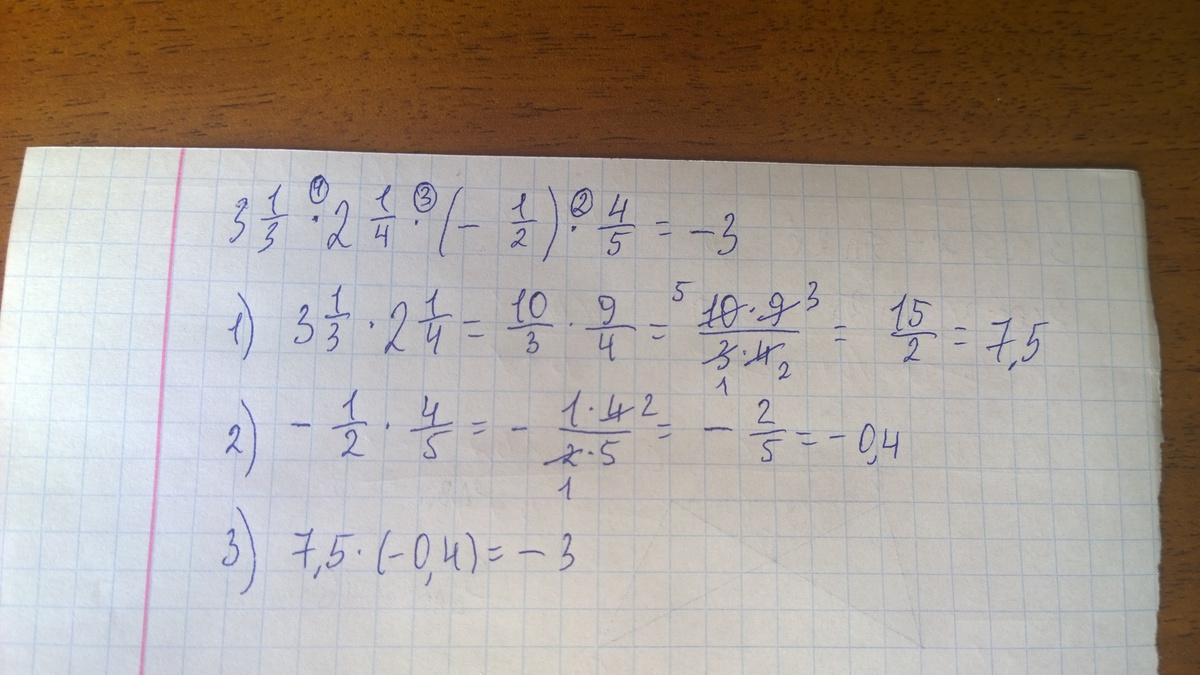 3 1/3 ·① 2 1/4 ·③ (- 1/2) ·② 4/5 = -3
1) 3 1/3 · 2 1/4 = 10/3 · 9/4 = 5 10·9 3 / 3·4 1 2 = 15/2 = 7,5
2) - 1/2 · 4/5 = - 1·4 2 / 2·5 1 = - 2/5 = -0,4
3) 7,5 · (-0,4) = -3